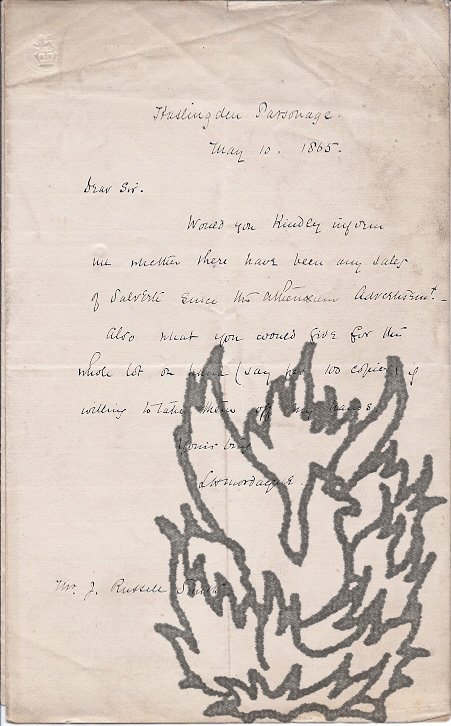 Haslingden Parsonage.
May 10. 1865.
Dear Sir.
Would you Kindly inform
me whether there have been any sales
of Salverte since the Athenaeum Advertisemt. –
Also what you would give for the
whole lot on hand (say 100 copies) if
willing to take them off my hands
Yours truly
L H Mordacque.
Mr. J. Russell Smith